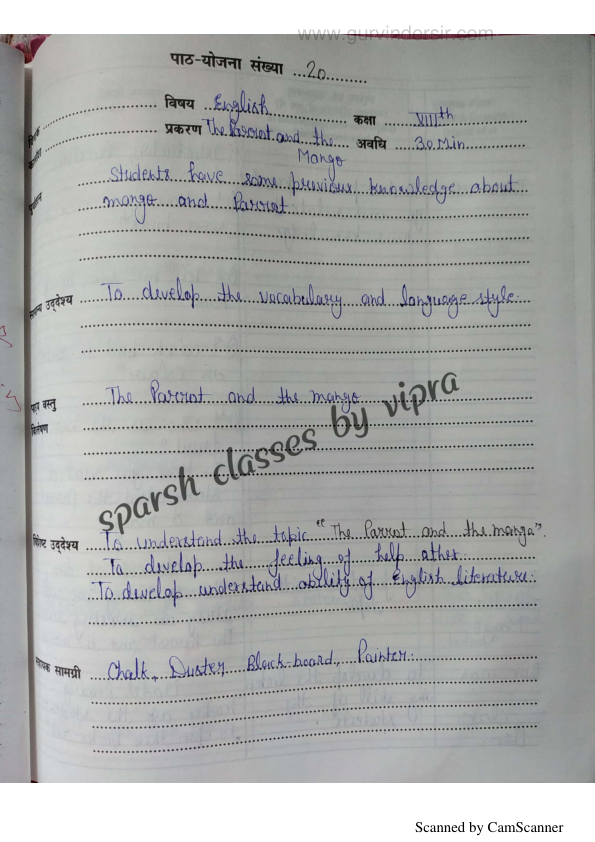 www.gurvindersir.com
पाठ-योजना संख्या ...20.........
विषय ...English............... कक्षा ....VIIIth....
प्रकरण The Parrot and the .... अवधि ....30 Min....
Mango
Students have some previous knowledge about
mango and Parrot
उद्देश्य To develop the vocabulary and language style.
वस्तु The Parrot and the mango
sparsh classes by vipra
उद्देश्य To understand the topic "The Parrot and the mango".
To develop the feeling of help other.
To develop understand ability of English literature.
सामग्री Chalk, Duster, Black-board, Painter.
Scanned by CamScanner